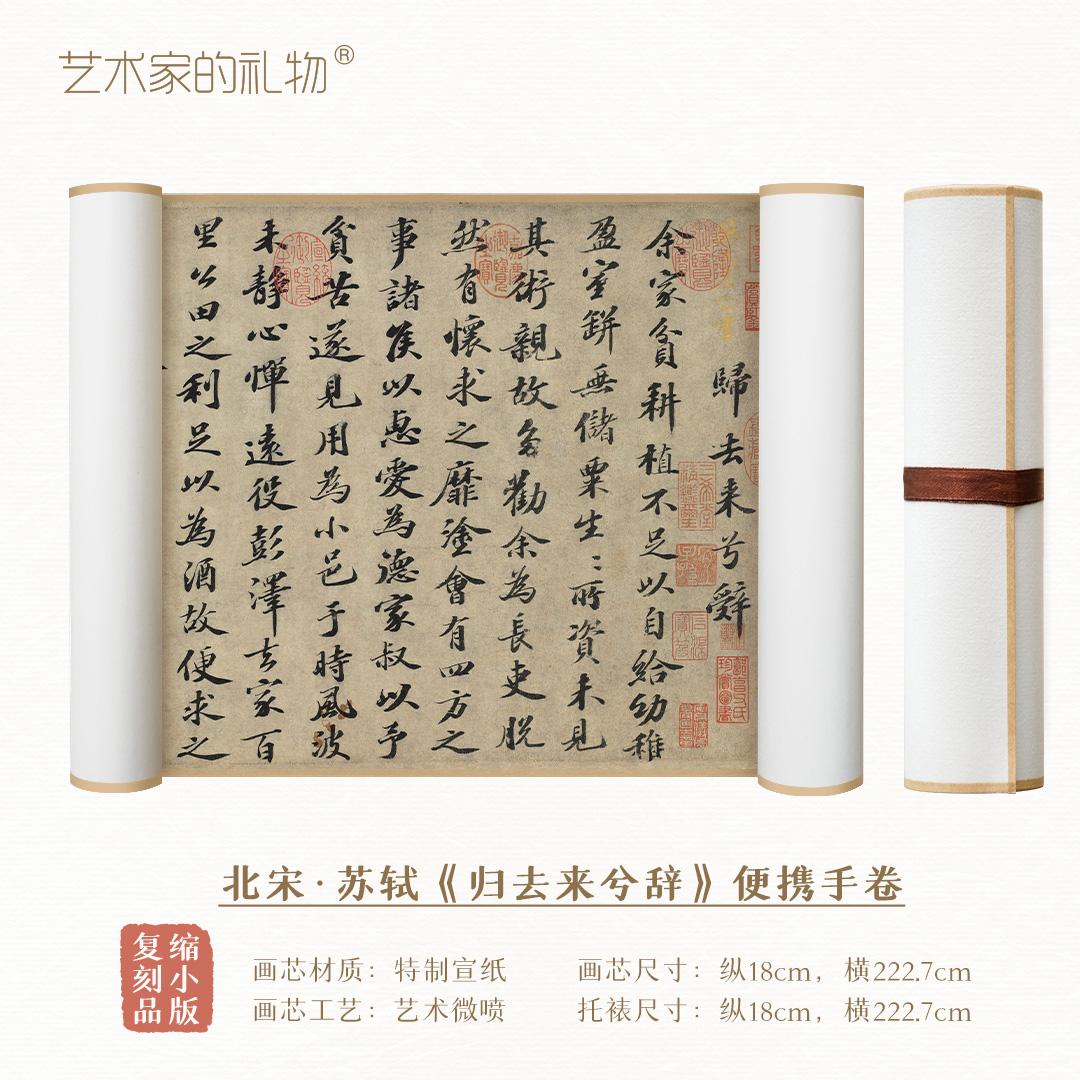 艺术家的礼物®
歸去来兮辭
余家貧耕植不足以自給幼稚
盈室缾無儲粟生〻所資未見
其術親故多勸余為長吏脫
然有懷求之靡塗會有四方之
事諸侯以惠愛為德家叔以予
貧苦遂見用為小邑于時風波
未静心憚遠役彭澤去家百
里公田之利足以為酒故便求之
北宋·苏轼《归去来兮辞》便携手卷
缩小版
复刻品
画芯材质：特制宣纸
画芯尺寸：纵18cm，横222.7cm
画芯工艺：艺术微喷
托裱尺寸：纵18cm，横222.7cm